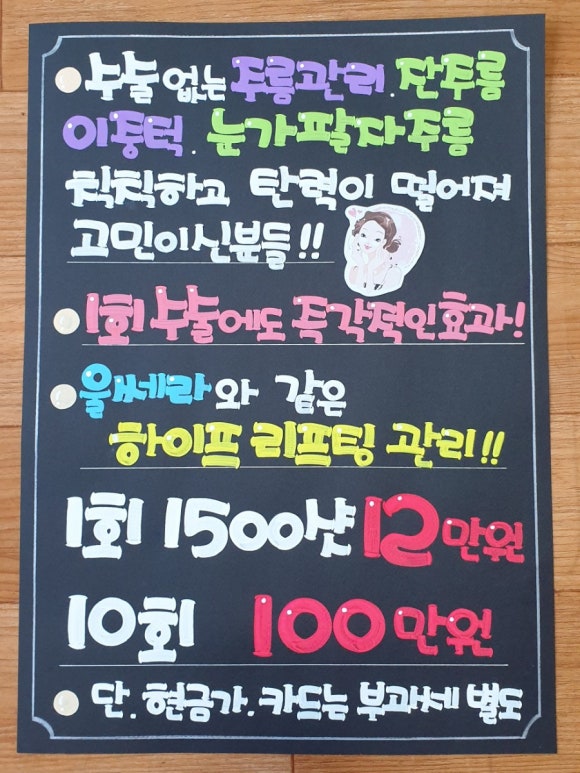 수술없는 주름관리. 잔주름
이중턱. 눈가팔자주름
칙칙하고 탄력이 떨어져
고민이신분들!!
1회 수술에도 즉각적인효과!
울쎄라와 같은
하이프 리프팅 관리!!
1회 1500샷 12만원
10회 100만원
단. 현금가. 카드는 부과세 별도